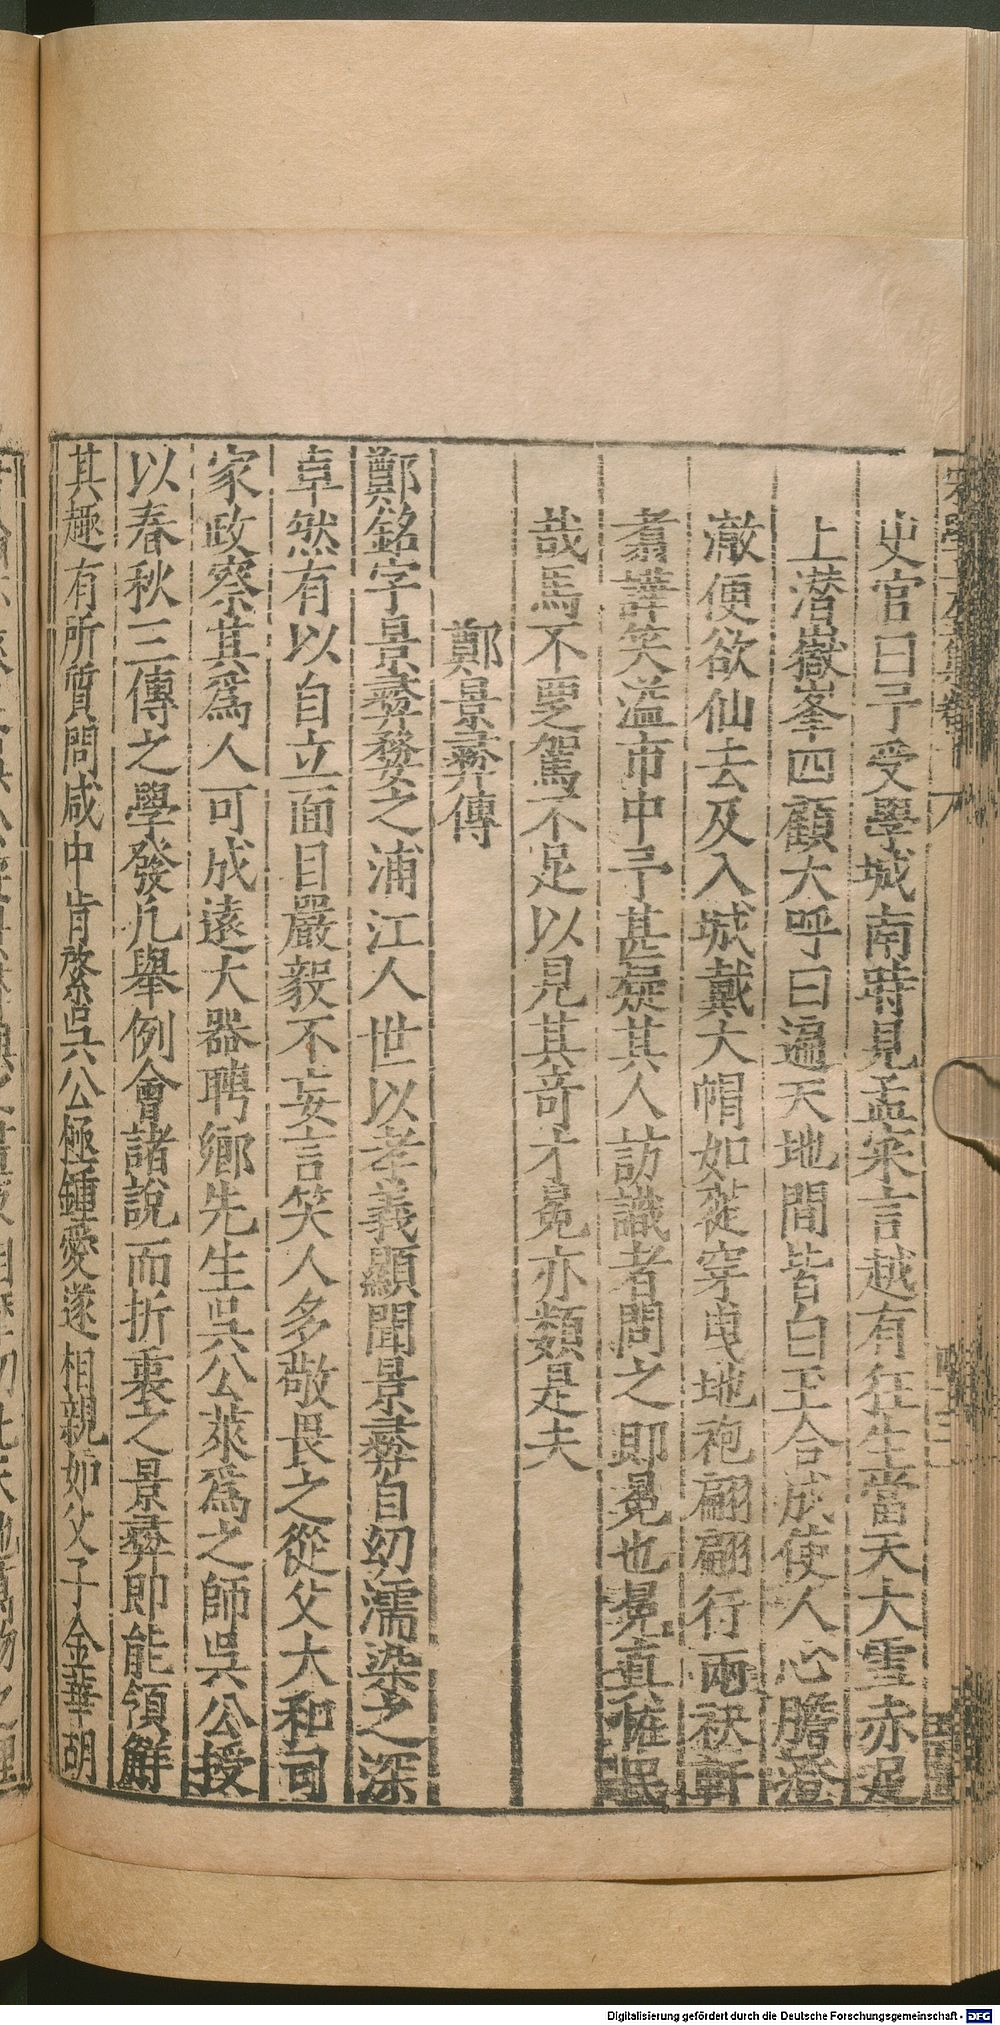 史官曰予受學城南時見孟寀言越有狂生當天大雪赤足
上潛嶽峯四顧大呼曰遍天地間皆白玉合成使人心膽澄
澈便欲仙去及入城戴大帽如蓰穿曳地袍翩翩行兩袂軒
翥譁笑溢市中予甚疑其人訪識者問之即冕也冕真怪民
哉馬不覂駕不足以見其奇才冕亦類是夫
鄭景彞傳
鄭銘字景彞婺之浦江人世以孝義顯聞景彞自幼濡染之深
卓然有以自立面目嚴毅不妄言笑人多敬畏之從父大和司
家政察其爲人可成遠大器聘鄉先生吳公萊爲之師吳公授
以春秋三傳之學發凡舉例會諸說而折衷之景彞即能領解
其趣有所質問咸中肯綮吳公極鍾愛遂相親如父子金華胡
Digitalisierung gefördert durch die Deutsche Forschungsgemeinschaft - DFG